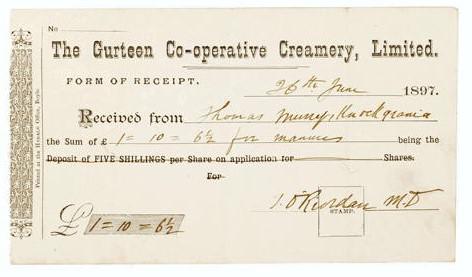 No
The Gurteen Co-operative Creamery, Limited.
FORM OF RECEIPT.
26th June 1897.
Received from Thomas Murray, Knockgrania
the Sum of £ 1 = 10 = 6½ for manures being the
Deposit of FIVE SHILLINGS per Share on application for Shares.
For
J. O'Riordan M.D
STAMP.
£ 1 = 10 = 6½
Printed at the HERALD Office, Boyle.